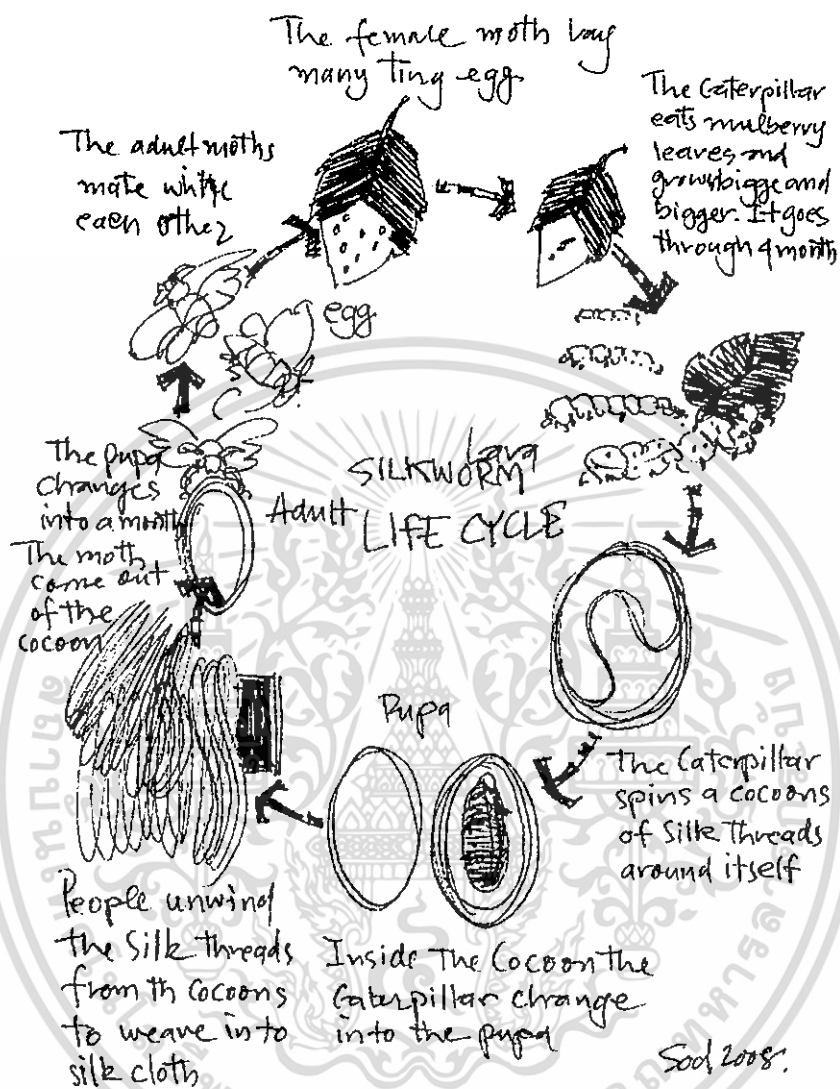 The female moth lay
many ting egg
The Caterpillar
eats mulberry
leaves and
grows bigge and
bigger. It goes
through 4 month
The adult moths
mate white
each other
egg
Lava
SILKWORM
LIFE CYCLE
The pupa
changes
into a month
Adult
The moth
come out
of the
cocoon
Pupa
The Caterpillar
spins a cocoons
of Silk Threads
around itself
People unwind
the Silk threads
from th cocoons
to weave into
silk cloth
Inside The Cocoon the
Caterpillar change
into the pupa
Sod, 2008.